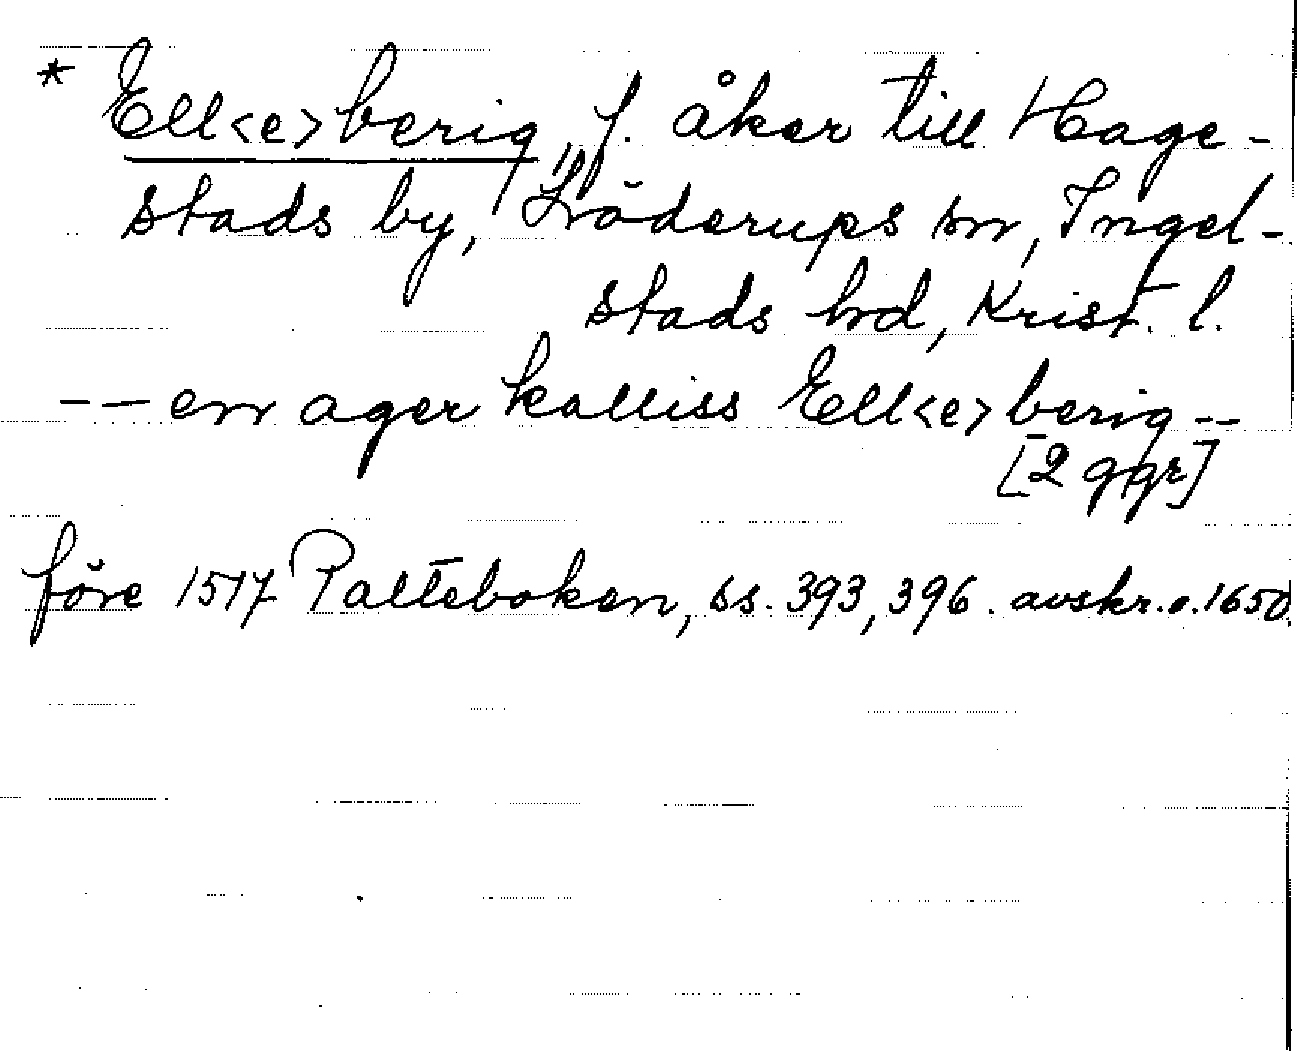 * Ell<e>berig, f. åker till Hage-
stads by, Löderups sn, Ingel-
stads hd, Krist. l.
-- en ager kalliss Ell<e>berig --
[2 ggr]
före 1517 Palteboken, ss. 393, 396. avskr. o. 1650